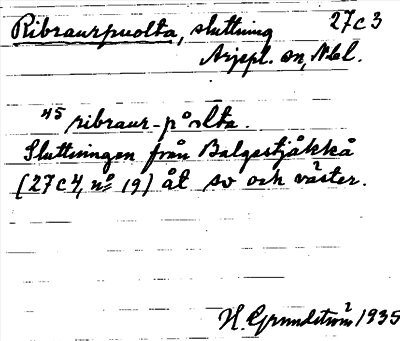 Ribraurpuolta, sluttning 27c3
Arjepl. sn, Nbl.
45 ribraur-påolta.
Sluttningen från Balgestjåkkå
(27c4, nº 19) åt sv och väster.
H. Grundström 1935